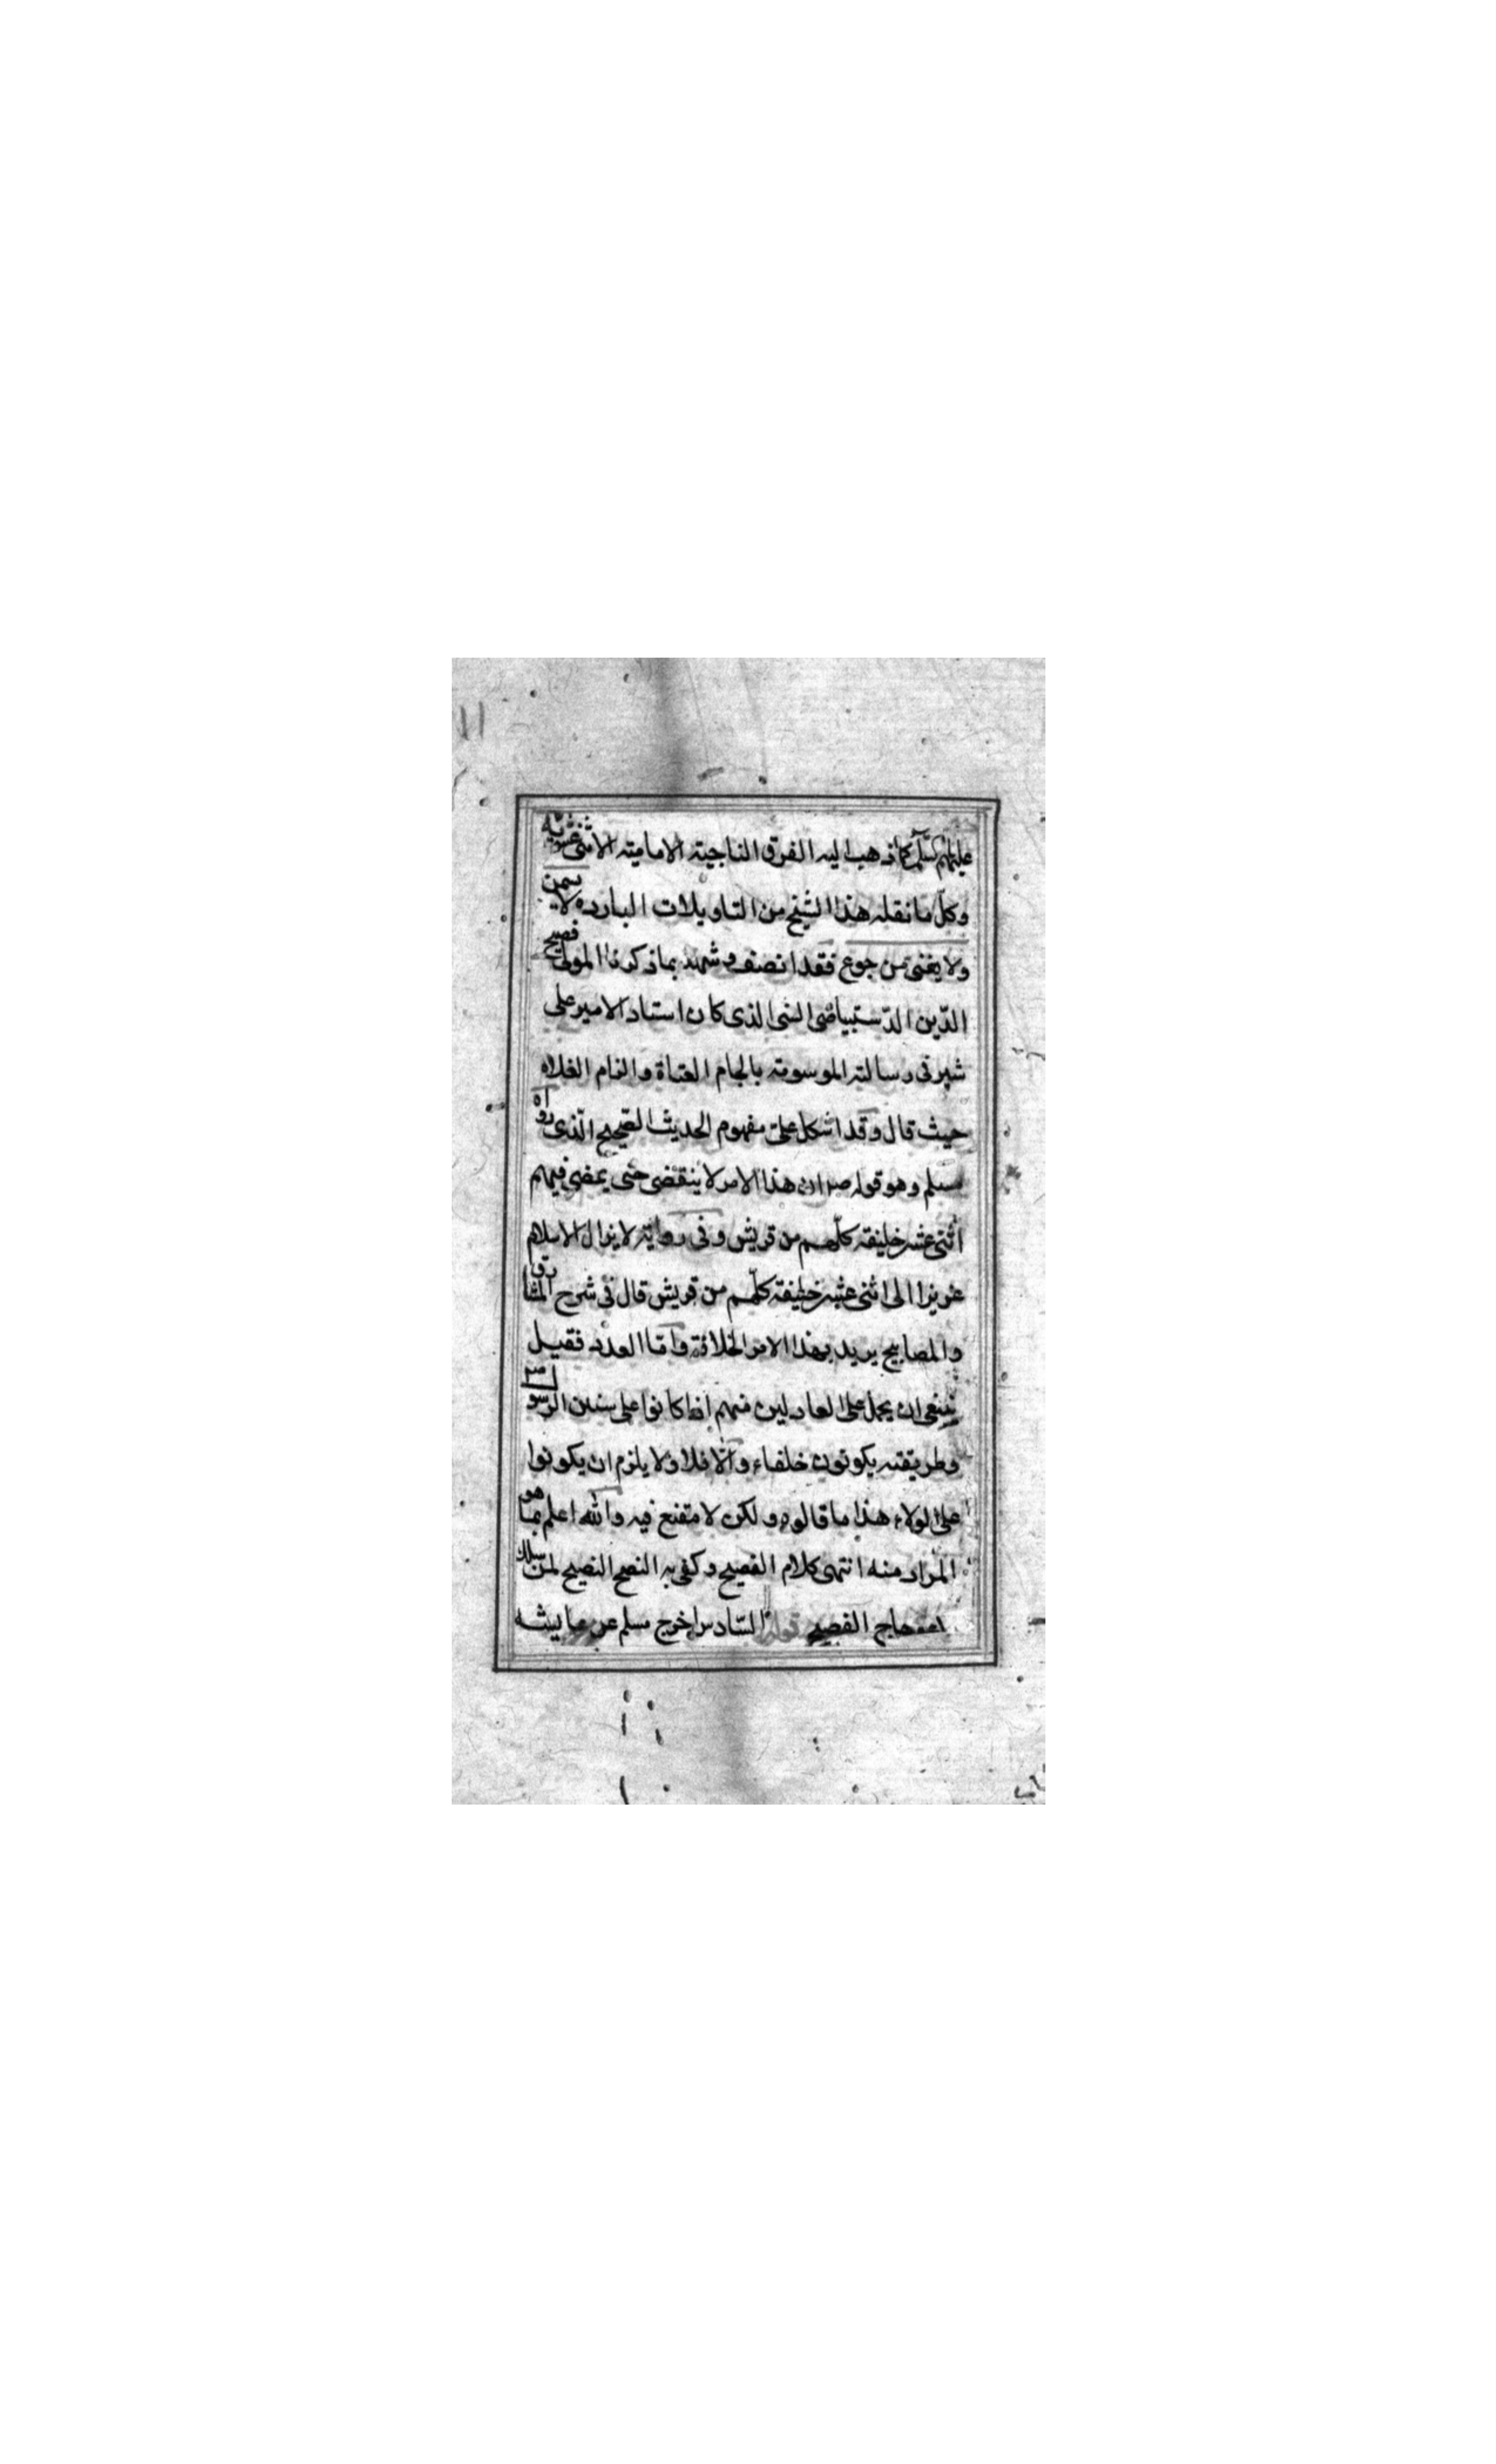 ١١
عليهم السّلم كما ذهب اليه الفرق الناجية الامامية الاثنى عشريه
وكلّ ما نقله هذا الشيخ من التاويلات البارده لا يسمن
ولا يغنى من جوع فقد انصف وشهد بما ذكرنا المولى فصيح
الدّين الدّستبياضى السنى الذى كان استاد الامير على
شير فى رسالته الموسومة بالجام العتاة والزام الغلاه
حيث قال وقد اشكل علىّ مفهوم الحديث الصّحيح الّذى رواه
مسلم وهو قوله ص ان هذا الامر لا ينقضى حتى يمضى فيهم
اثنى عشر خليفة كلّهم من قريش وفى رواية لا يزال الاسلام
عزيزا الى اثنى عشر خليفة كلّهم من قريش قال فى شرح المشارق
والمصابيح يريد بهذا الامر الخلافة وامّا العدد فقيل
ينبغى ان يحمل على العادلين منهم اذا كانوا على سنن الرسول ص
وطريقته يكونون خلفاء والّا فلا ولا يلزم ان يكونوا
على الولاء هذا ما قالوه ولكن لا مقنع فيه والله اعلم بما هو
المراد منه انتهى كلام الفصيح وكفى به النصح النصيح لمن سلك
الفصيح قوله السّادس اخرج مسلم عن عايشه